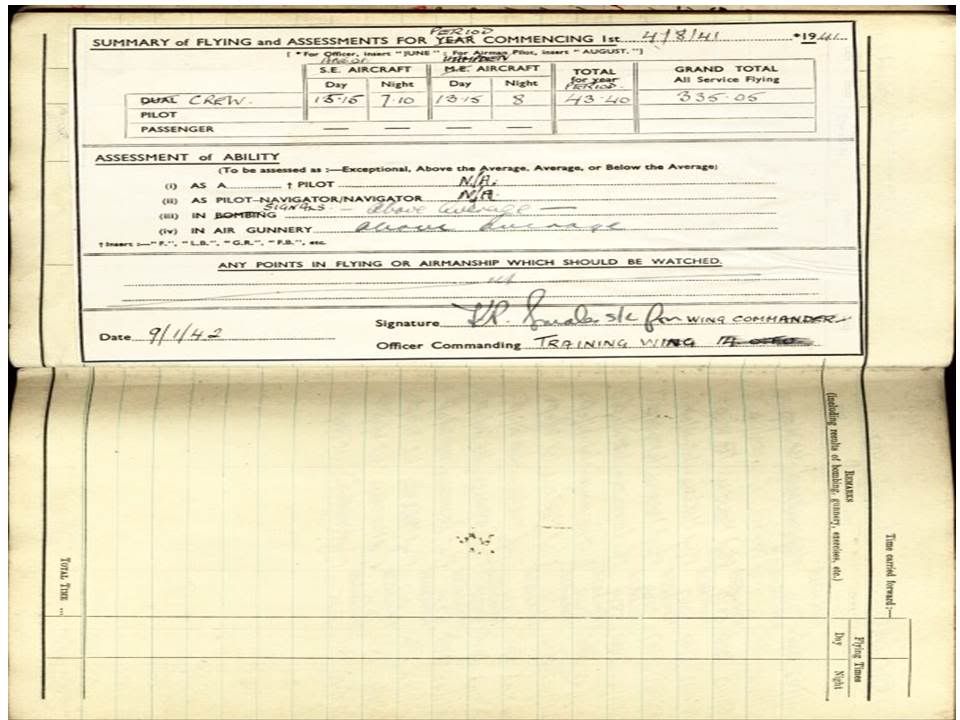 PERIOD
SUMMARY of FLYING and ASSESSMENTS FOR YEAR COMMENCING 1st 4/8/41 *1941
[ *For Officer, insert "JUNE" ; For Airman Pilot, insert "AUGUST." ]
ANSON HAMPDEN
S.E. AIRCRAFT M.E. AIRCRAFT TOTAL for year PERIOD GRAND TOTAL All Service Flying
Day Night Day Night
DUAL CREW. 15.15 7.10 13.15 8 43.40 335.05
PILOT
PASSENGER — — — — —
ASSESSMENT of ABILITY
(To be assessed as :—Exceptional, Above the Average, Average, or Below the Average)
(i) AS A † PILOT N/A.
(ii) AS PILOT-NAVIGATOR/NAVIGATOR N/A.
SIGNALS.
(iii) IN BOMBING — above average —
(iv) IN AIR GUNNERY above average
† Insert :—"F.", "L.B.", "G.R.", "F.B.", etc.
ANY POINTS IN FLYING OR AIRMANSHIP WHICH SHOULD BE WATCHED.
Signature S/L for WING COMMANDER
Date 9/1/42
Officer Commanding TRAINING WING
REMARKS
(including results of bombing, gunnery, exercises, etc.)
Time carried forward :—
Flying Times
Day Night
TOTAL TIME ...